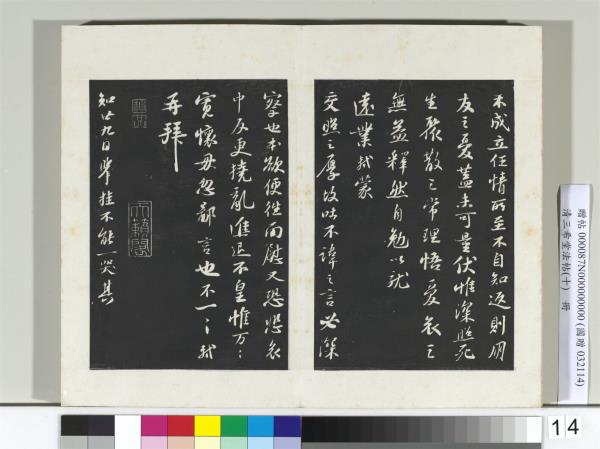 不成立任情所至不自知返則朋
友之憂蓋未可量伏惟深照死
生聚散之常理悟憂哀之
無益釋然自勉以就
遠業軾蒙
交照之厚故吐不諱之言必深
察也本欲便往面慰又恐悲哀
中反更撓亂進退不皇惟万〻
寬懷毋忽鄙言也不一〻軾
再拜
知廿九日舉挂不能一哭其
贈帖 000087N000000000 (國贈 032114)
清三希堂法帖(十) 冊
14